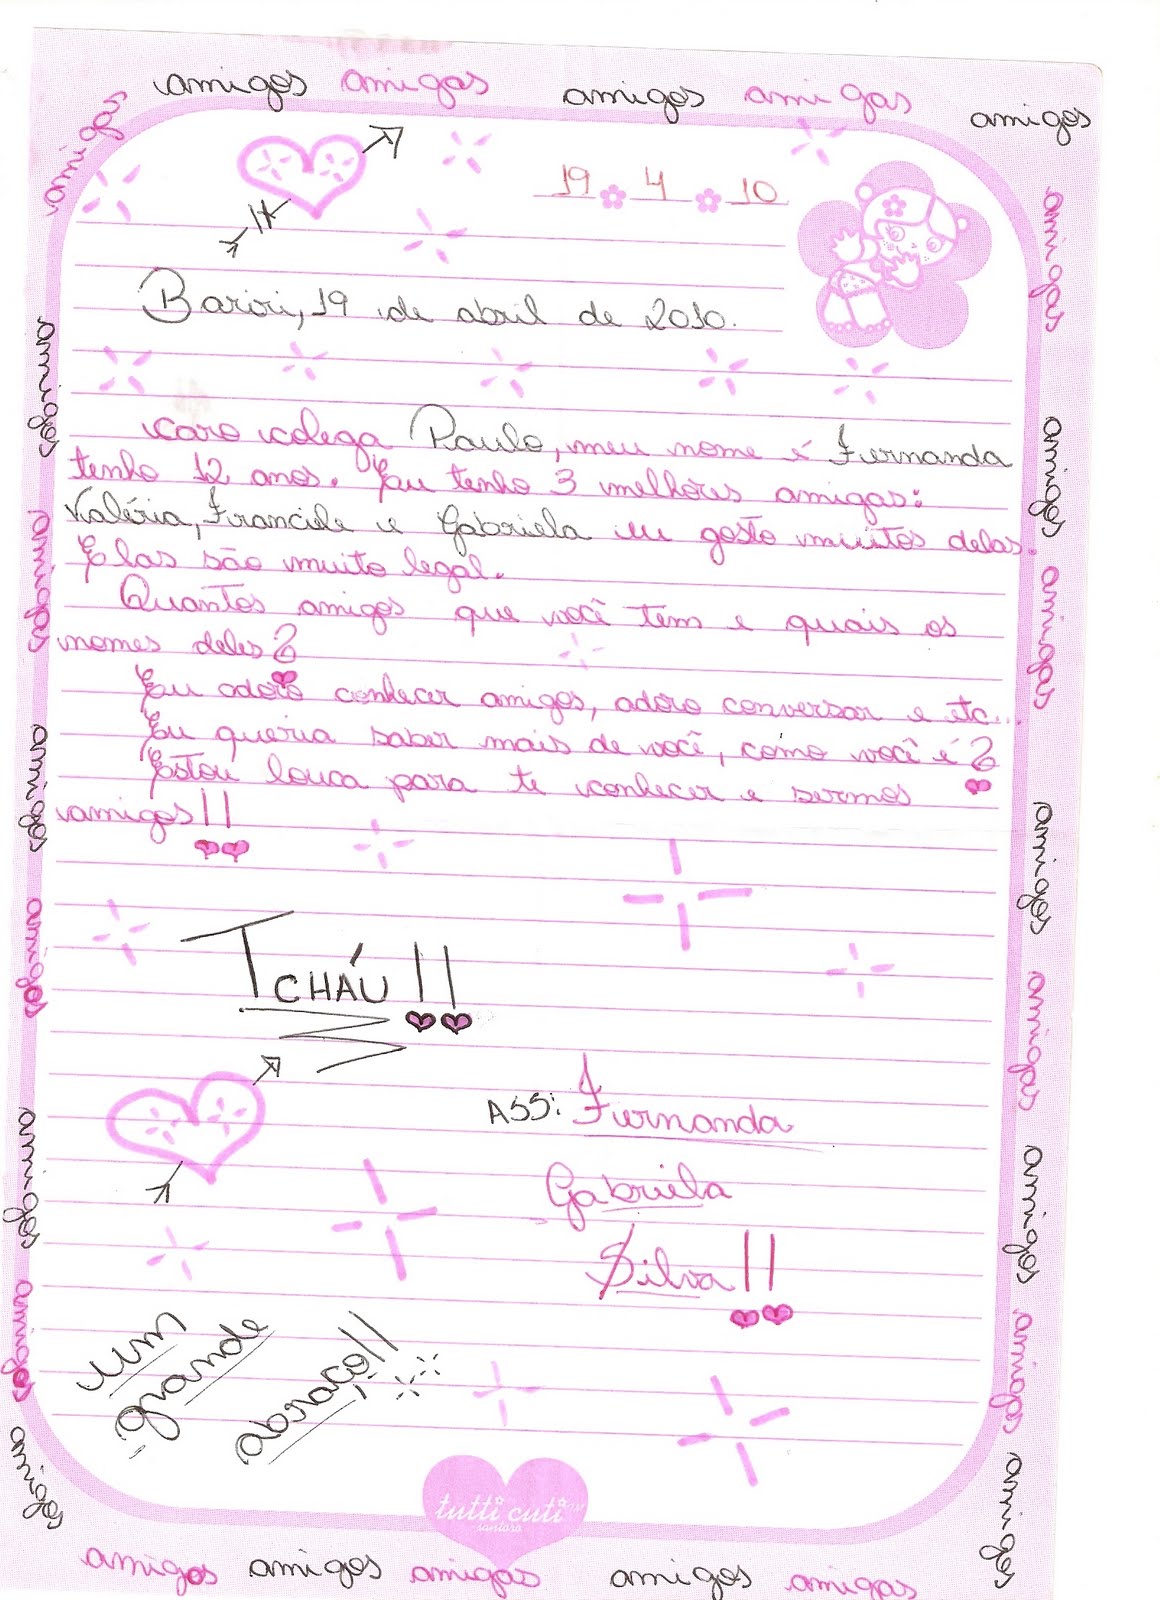 amigos amigas amigos amigas amigos
amigas
19 4 10
Bariri, 19 de abril de 2010.
Caro colega Paulo, meu nome é Fernanda
tenho 12 anos. Eu tenho 3 melhores amigas:
Valéria, Franciele e Gabriela eu gosto muitos delas.
Elas são muito legal.
Quantos amigos que você tem e quais os
nomes deles?
Eu adoro conhecer amigos, adoro conversar e etc...
Eu queria saber mais de você, como você é?
Estou louca para te conhecer e sermos
amigos!!
TCHÁU!!
ASS: Fernanda
Gabriela
Silva!!
um
grande
abraço!!
tutti cuti
santoro
amigos
amigas
amigos
amigas
amigos
amigas
amigos
amigas
amigos
amigas
amigos
amigas
amigos
amigas
amigos
amigas amigos amigas amigos amigas